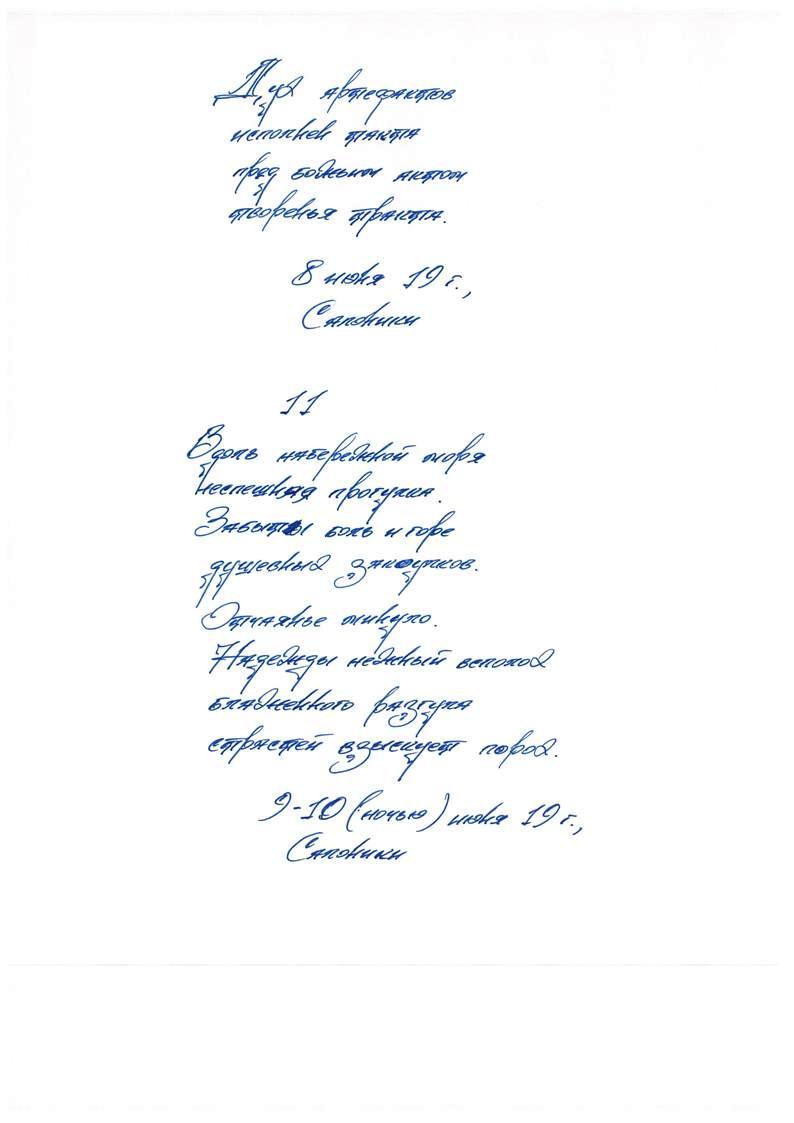 Дух артефактов
исполнен такта
пред божьим актом
творенья тракта.
8 июня 19 г.,
Салоники
11
Вдоль набережной моря
неспешная прогулка.
Забыты боль и горе
душевных закоулков.
Отчаянье минуло.
Надежды нежный всполох
блаженного разгула
страстей взыскует город.
9-10 (ночью) июня 19 г.,
Салоники